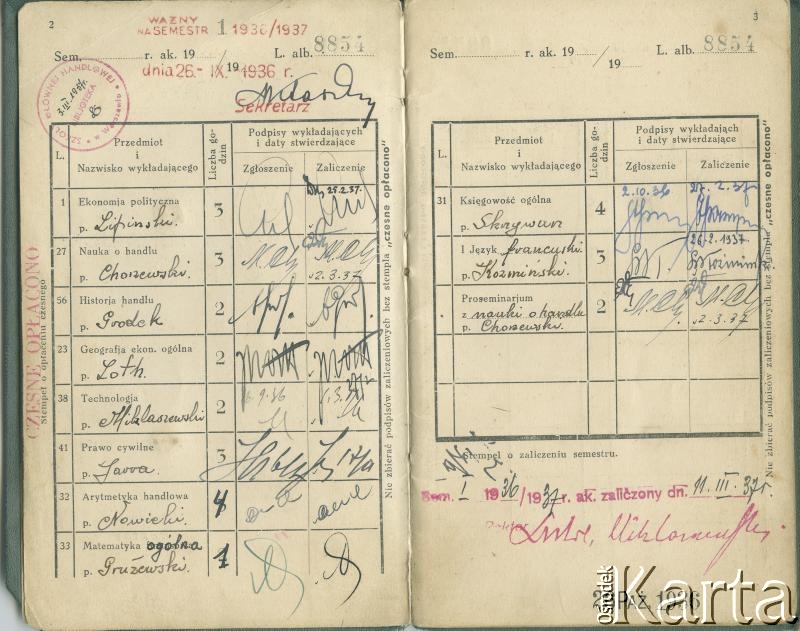 2
WAŻNY
NA SEMESTR 1 1936/1937
Sem. r. ak. 19 / 19 L. alb. 8854
dnia 26.- IX. 1936 r.
Sekretarz
SZKOŁY GŁÓWNEJ HANDLOWEJ
BIBLIOTEKA
w Warszawie
CZESNE OPŁACONO
Stempel o opłaceniu czesnego
L.
Przedmiot
i
Nazwisko wykładającego
Liczba godzin
Podpisy wykładających
i daty stwierdzające
Zgłoszenie Zaliczenie
1 Ekonomja polityczna 3 25.2.37.
p. Lipiński.
27 Nauka o handlu 3
p. Chorzewski. 2.3.37
56 Historja handlu 2
p. Grodek
23 Geografja ekon. ogólna 2
p. Loth.
38 Technologja 2
p. Miklaszewski
41 Prawo cywilne 3
p. Sawa.
32 Arytmetyka handlowa 4
p. Nowicki.
33 Matematyka ogólna 1
p. Prużewski.
Nie zbierać podpisów zaliczeniowych bez stempla „czesne opłacono"
3
Sem. r. ak. 19 / 19 L. alb. 8854
L.
Przedmiot
i
Nazwisko wykładającego
Liczba godzin
Podpisy wykładających
i daty stwierdzające
Zgłoszenie Zaliczenie
31 Księgowość ogólna 4 2.10.36 2.37
p. Skrzywan
I Język francuski 3 26.2.1937
p. Koźmiński. Koźmiński
Proseminarium 2
z nauki o handlu
p. Chorzewski. 2.3.37
Nie zbierać podpisów zaliczeniowych bez stempla „czesne opłacono"
Stempel o zaliczeniu semestru.
Sem. I 1936/1937 r. ak. zaliczony dn. 11. III. 37r.
Miklaszewski
PAŹ. 1936
ośrodek
Karta
www.karta.org.pl